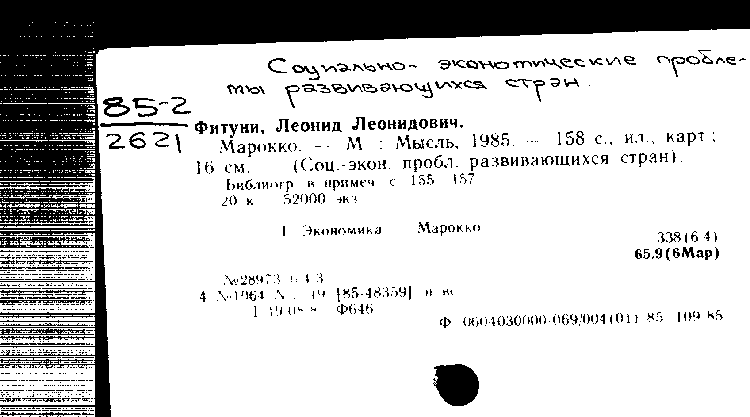 Социально-экономические пробле-
мы развивающихся стран.
85-2
2621
Фитуни, Леонид Леонидович.
Марокко. -- М : Мысль, 1985. -- 158 с., ил., карт ;
16 см. (Соц.-экон. пробл. развивающихся стран).
Библиогр в примеч с 155 157
20 к 52000 экз
1 Экономика Марокко
338(6 4)
65.9(6Мар)
№28973
4 №1964 19 [85-48359]
Ф646
Ф 0604030000-069/004(01) 85 109 85